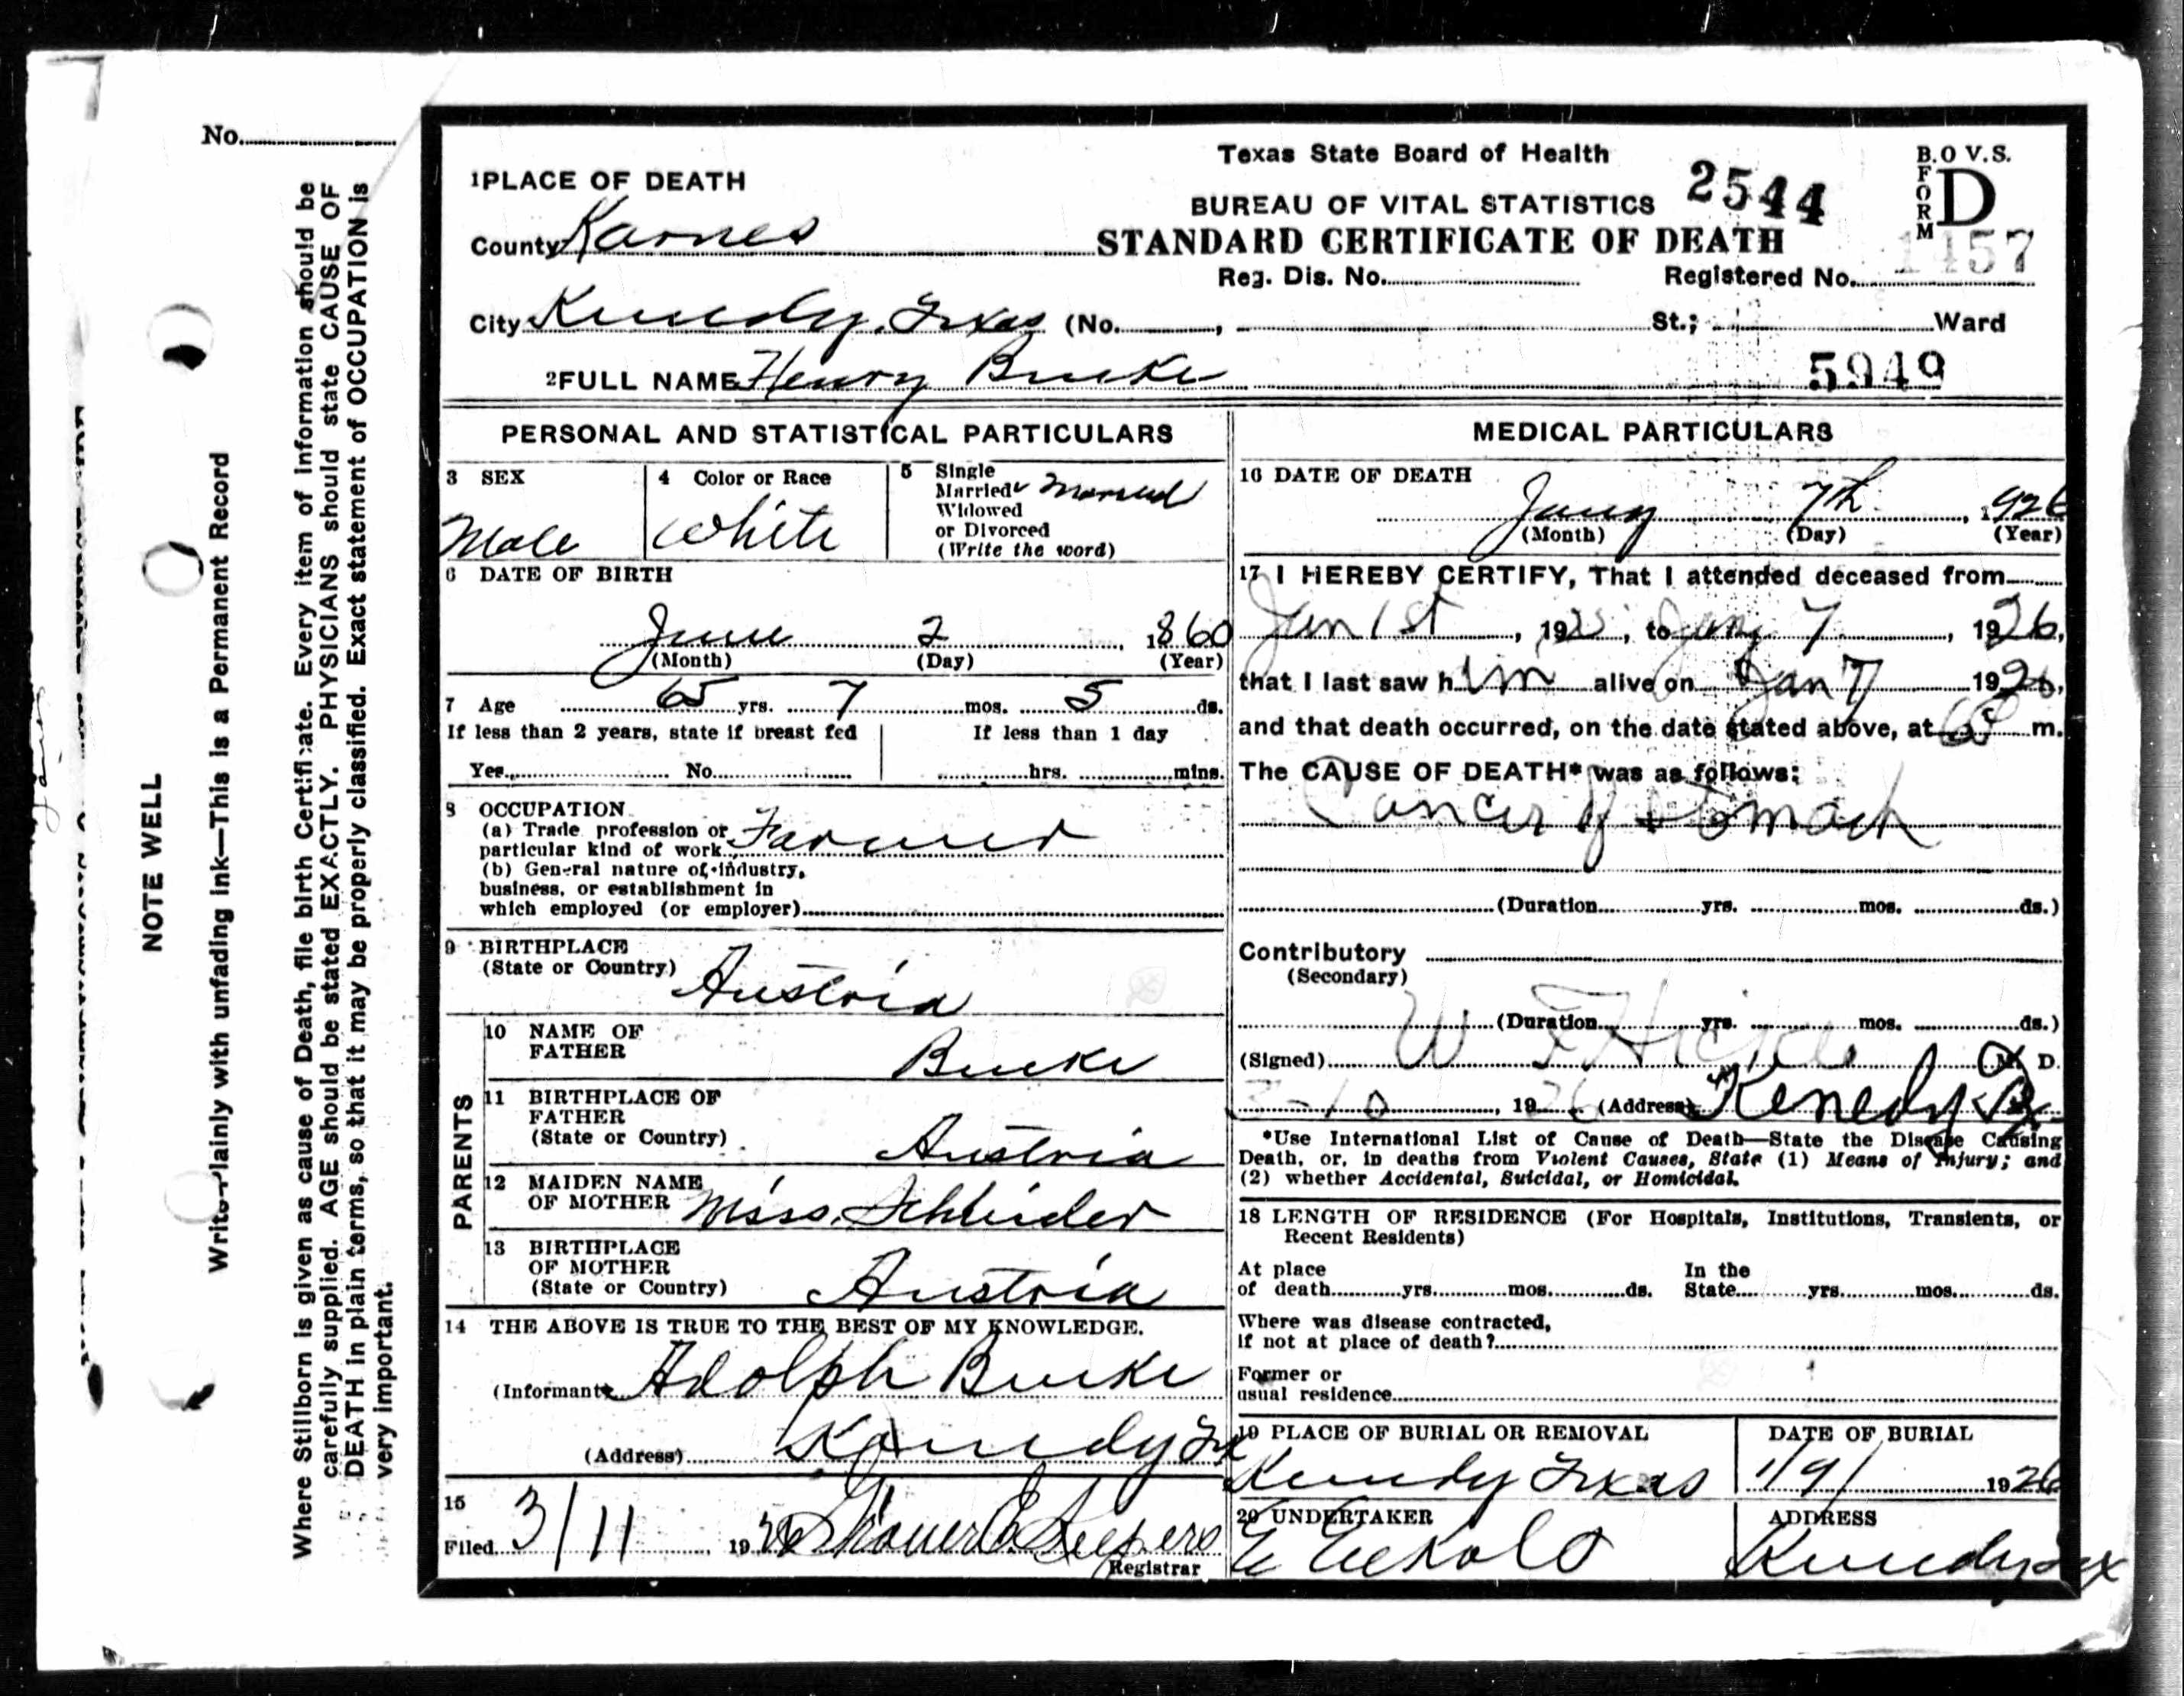 No.
NOTE WELL
Write Plainly with unfading ink—This is a Permanent Record
Where Stillborn is given as cause of Death, file birth Certificate. Every item of information should be
carefully supplied. AGE should be stated EXACTLY. PHYSICIANS should state CAUSE OF
DEATH in plain terms, so that it may be properly classified. Exact statement of OCCUPATION is
very important.
Texas State Board of Health
BUREAU OF VITAL STATISTICS 2544
STANDARD CERTIFICATE OF DEATH
B.O V.S.
FORM D
1PLACE OF DEATH
County Karnes
Reg. Dis. No. Registered No. 1457
City Kenedy, Texas (No. , St.; Ward
2FULL NAME Henry
5949
PERSONAL AND STATISTICAL PARTICULARS
3 SEX
Male
4 Color or Race
White
5 Single
Married Married
Widowed
or Divorced
(Write the word)
6 DATE OF BIRTH
June 2 , 1860
(Month) (Day) (Year)
7 Age 65 yrs. 7 mos. 5 ds.
If less than 2 years, state if breast fed
Yes No
If less than 1 day
hrs. mins.
8 OCCUPATION
(a) Trade profession or
particular kind of work Farmer
(b) General nature of industry,
business, or establishment in
which employed (or employer)
9 BIRTHPLACE
(State or Country) Austria
PARENTS
10 NAME OF
FATHER
11 BIRTHPLACE OF
FATHER
(State or Country) Austria
12 MAIDEN NAME
OF MOTHER Miss.
13 BIRTHPLACE
OF MOTHER
(State or Country) Austria
14 THE ABOVE IS TRUE TO THE BEST OF MY KNOWLEDGE.
(Informant) Adolph
(Address) Kenedy Tex
15
Filed 3/11 , 1926
Registrar
MEDICAL PARTICULARS
16 DATE OF DEATH
Jany 7th , 1926
(Month) (Day) (Year)
17 I HEREBY CERTIFY, That I attended deceased from
Jan 1st , 192 , to Jany 7 , 1926,
that I last saw him alive on Jan 7 1926,
and that death occurred, on the date stated above, at m.
The CAUSE OF DEATH* was as follows:
Cancer of Stomach
(Duration yrs. mos. ds.)
Contributory
(Secondary)
(Duration yrs. mos. ds.)
(Signed) W M. D.
, 1926 (Address) Kenedy Tx
*Use International List of Cause of Death—State the Disease Causing
Death, or, in deaths from Violent Causes, State (1) Means of Injury; and
(2) whether Accidental, Suicidal, or Homicidal.
18 LENGTH OF RESIDENCE (For Hospitals, Institutions, Transients, or
Recent Residents)
At place In the
of death yrs. mos. ds. State yrs. mos. ds.
Where was disease contracted,
if not at place of death?
Former or
usual residence
19 PLACE OF BURIAL OR REMOVAL
Kenedy Texas
DATE OF BURIAL
1/9/ 1926
20 UNDERTAKER
E
ADDRESS
Kenedy Tex